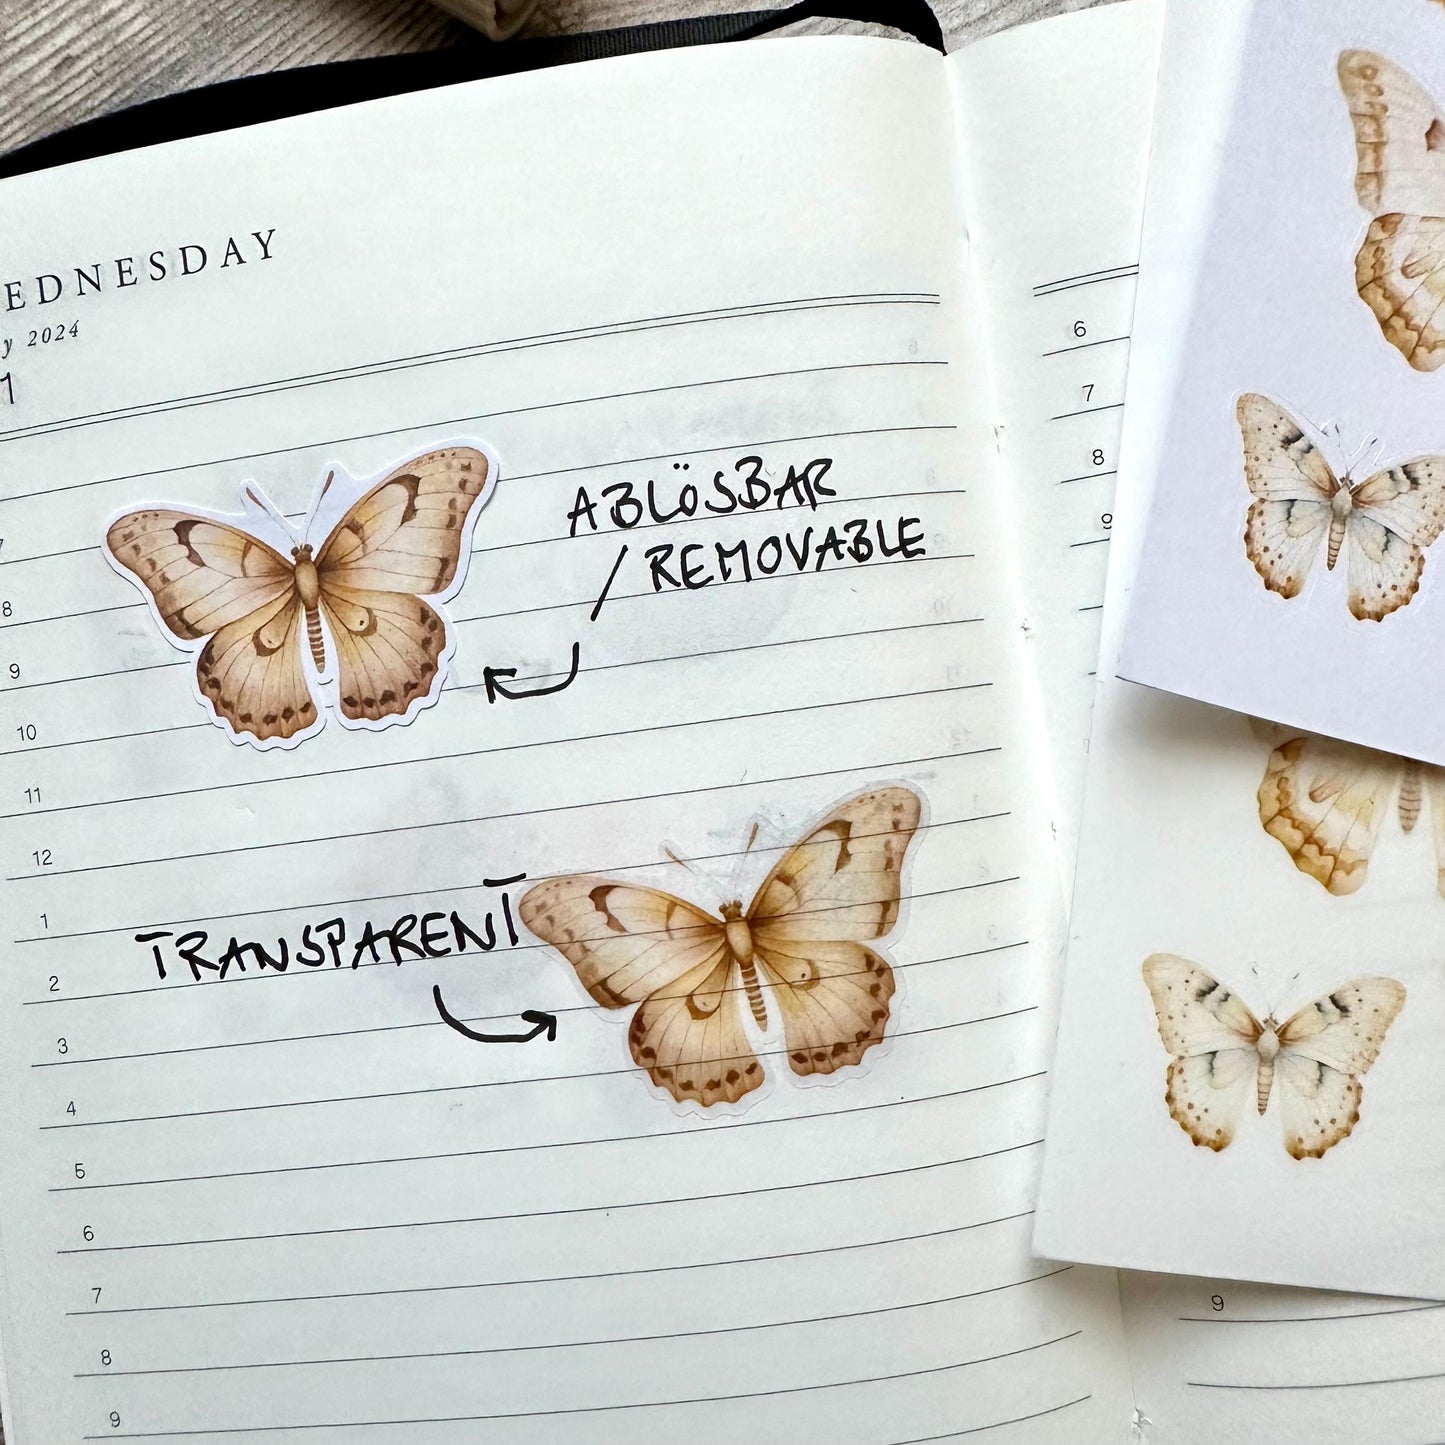 EDNESDAY
y 2024
1
ABLÖSBAR
/REMOVABLE
TRANSPARENT
7
8
9
10
11
12
1
2
3
4
5
6
7
8
9
6
7
8
9
9